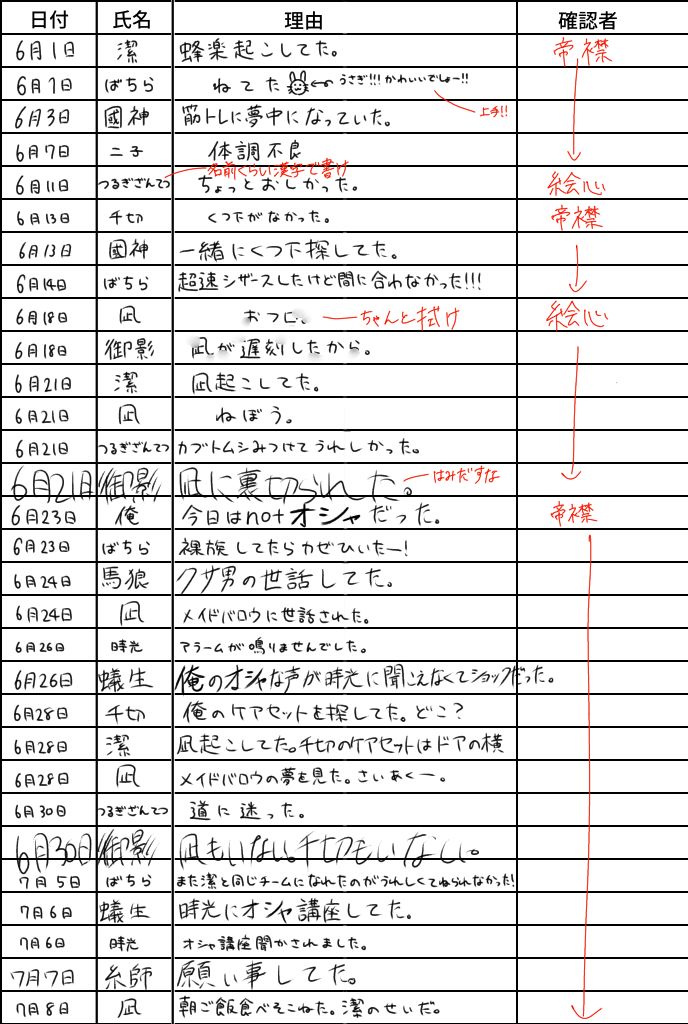 日付 氏名 理由 確認者
6月1日 潔 蜂楽起こしてた。 帝襟
6月7日 ばちら ねてた ←うさぎ!!!かわいいでしょー!!
上手!!
6月3日 國神 筋トレに夢中になっていた。
6月7日 二子 体調不良
名前くらい漢字で書け
6月11日 つるぎざんてつ ちょっとおしかった。 絵心
6月13日 千切 くつ下がなかった。 帝襟
6月13日 國神 一緒にくつ下探してた。
6月14日 ばちら 超速シザースしたけど間に合わなかった!!!
6月18日 凪 おつじ、 ちゃんと拭け 絵心
6月18日 御影 凪が遅刻したから。
6月21日 潔 凪起こしてた。
6月21日 凪 ねぼう。
6月21日 つるぎざんてつ カブトムシみつけてうれしかった。
6月21日 御影 凪に裏切られた。 はみだすな
6月23日 俺 今日はnotオシャだった。 帝襟
6月23日 ばちら 裸族してたらカゼひいたー!
6月24日 馬狼 クサ男の世話してた。
6月24日 凪 メイドバロウに世話された。
6月26日 時光 アラームが鳴りませんでした。
6月26日 蟻生 俺のオシャな声が時光に聞こえなくてショックだった。
6月28日 千切 俺のケアセットを探してた。どこ?
6月28日 潔 凪起こしてた。千切のケアセットはドアの横
6月28日 凪 メイドバロウの夢を見た。さいあくー。
6月30日 つるぎざんてつ 道に迷った。
6月30日 御影 凪もいない。千切もいなしい。
7月5日 ばちら また潔と同じチームになれたのがうれしくてねられなかった!
7月6日 蟻生 時光にオシャ講座してた。
7月6日 時光 オシャ講座聞かされました。
7月7日 糸師 願い事してた。
7月8日 凪 朝ご飯食べそこねた。潔のせいだ。